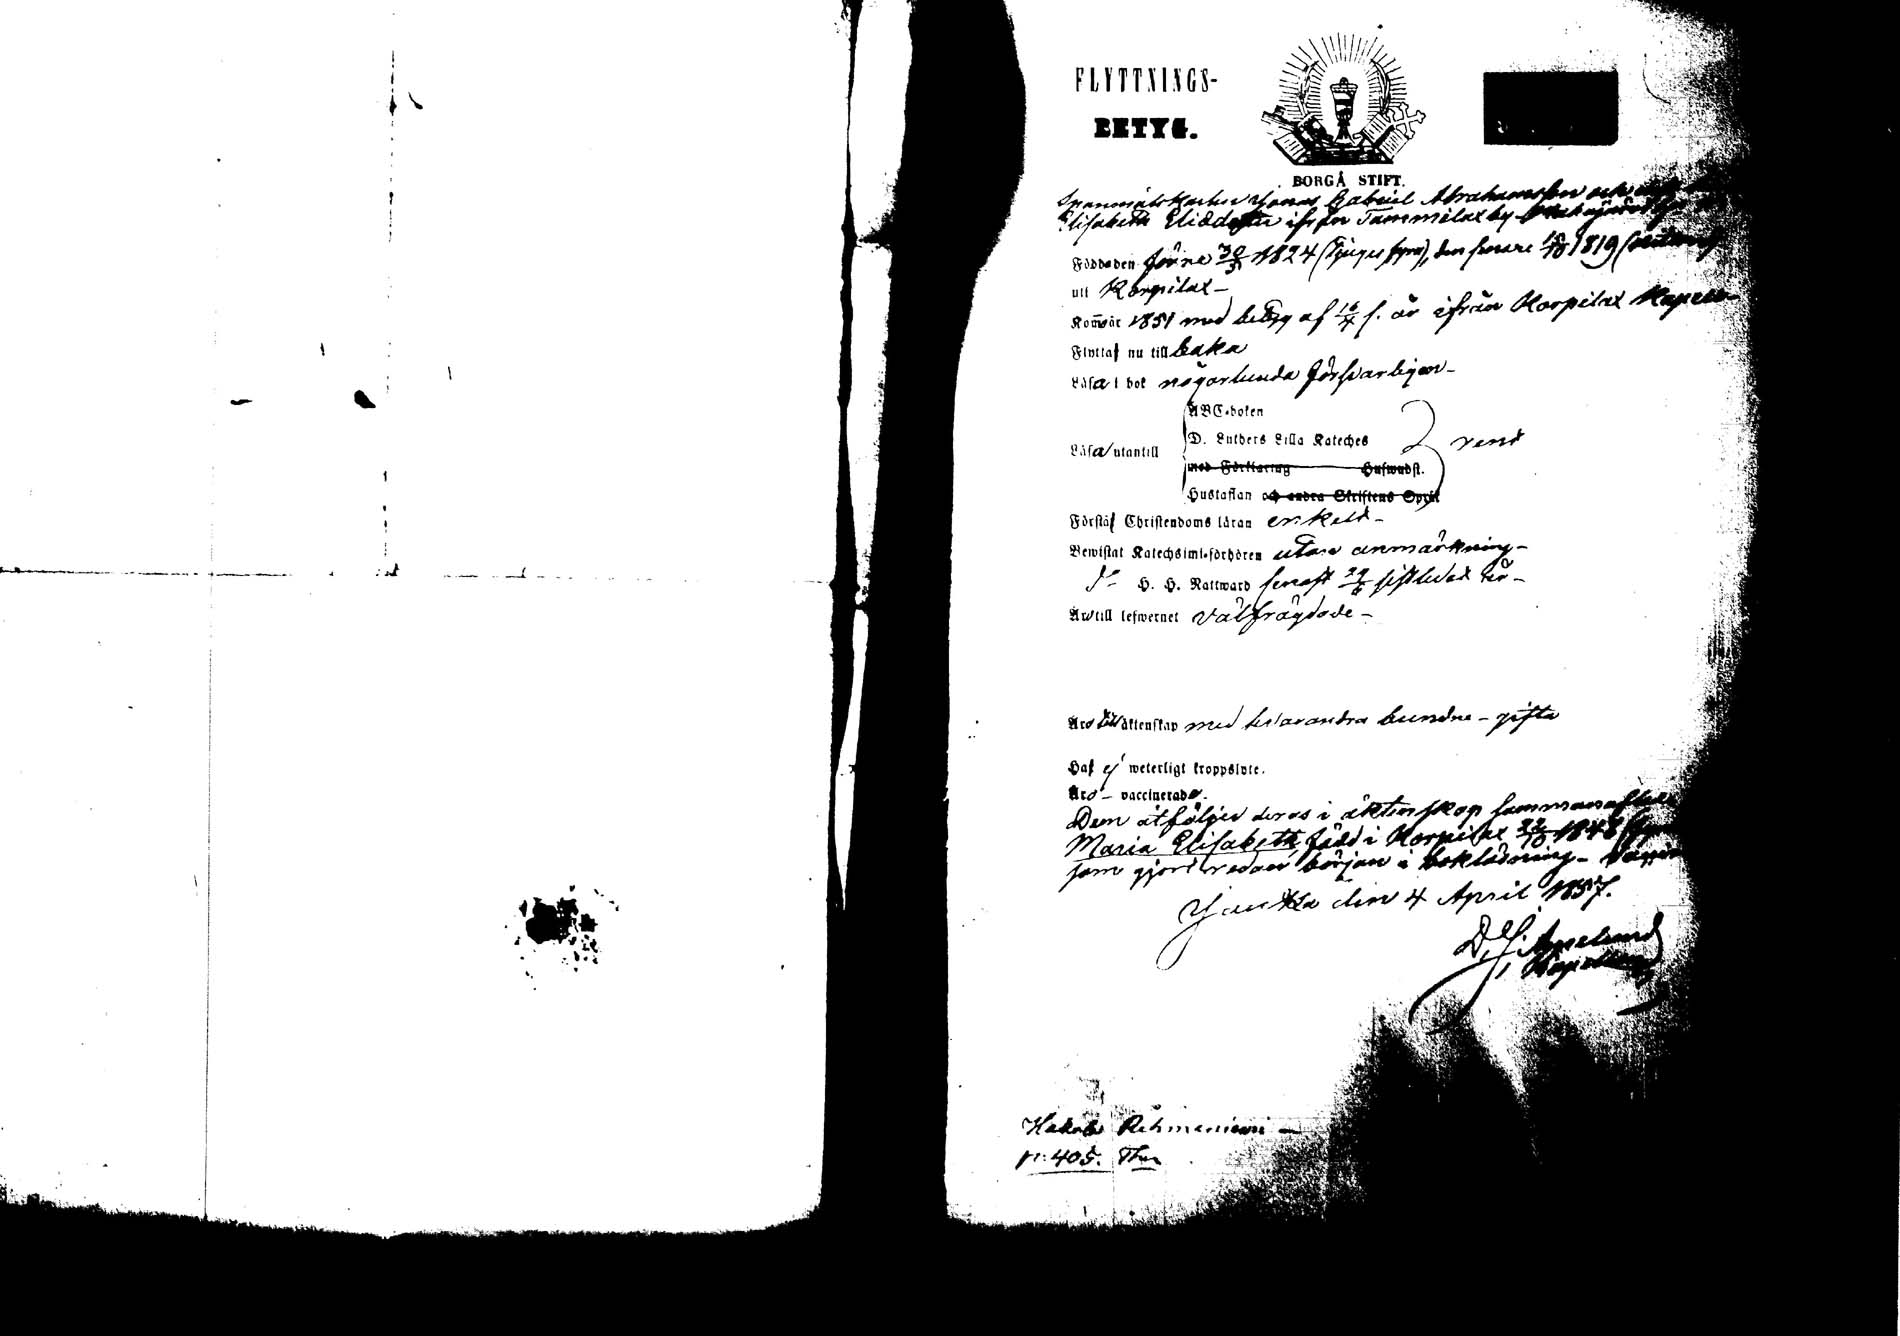 FLYTTNINGS-
BETYG.
BORGÅ STIFT.
Spanmåls Karlen Jonas Gabriel Abrahamsson och
Elisabeth Eliædotter ifrån Tammilax by
Födde den förre 30/3 1824 (Tjugu fyra), den senare 1819
uti Korpilax –
Kom̄o år 1851 med betyg af 16/4 s. år ifrån Korpilax Kapell –
Flytta nu till baka
Läsa i bok någorlunda försvarligen –
ABC-boken
Läsa utantill D. Luthers Lilla Kateches rent
med Förklaring Huswudst.
Hustaflan och andra Skriftens Språk
Förstå Christendoms läran enkelt –
Bewistat Katechismi-förhören utan anmärkning –
H. H. Nattward senast sistledet år –
Äro till lefwernet välfrägdade –
Äro till äktenskap med hvarandra bundne – gifta
Haf ej weterligt kroppslyte.
Äro – vaccinerade.
Dem åtföljer deras i äktenskap sammanaflade
Maria Elisabeth född i Korpilax 22/10 1848
som gjort redan början i bokläsning –
Jaukka den 4 April 1857.
D. J.
Kapellan
p: 405.